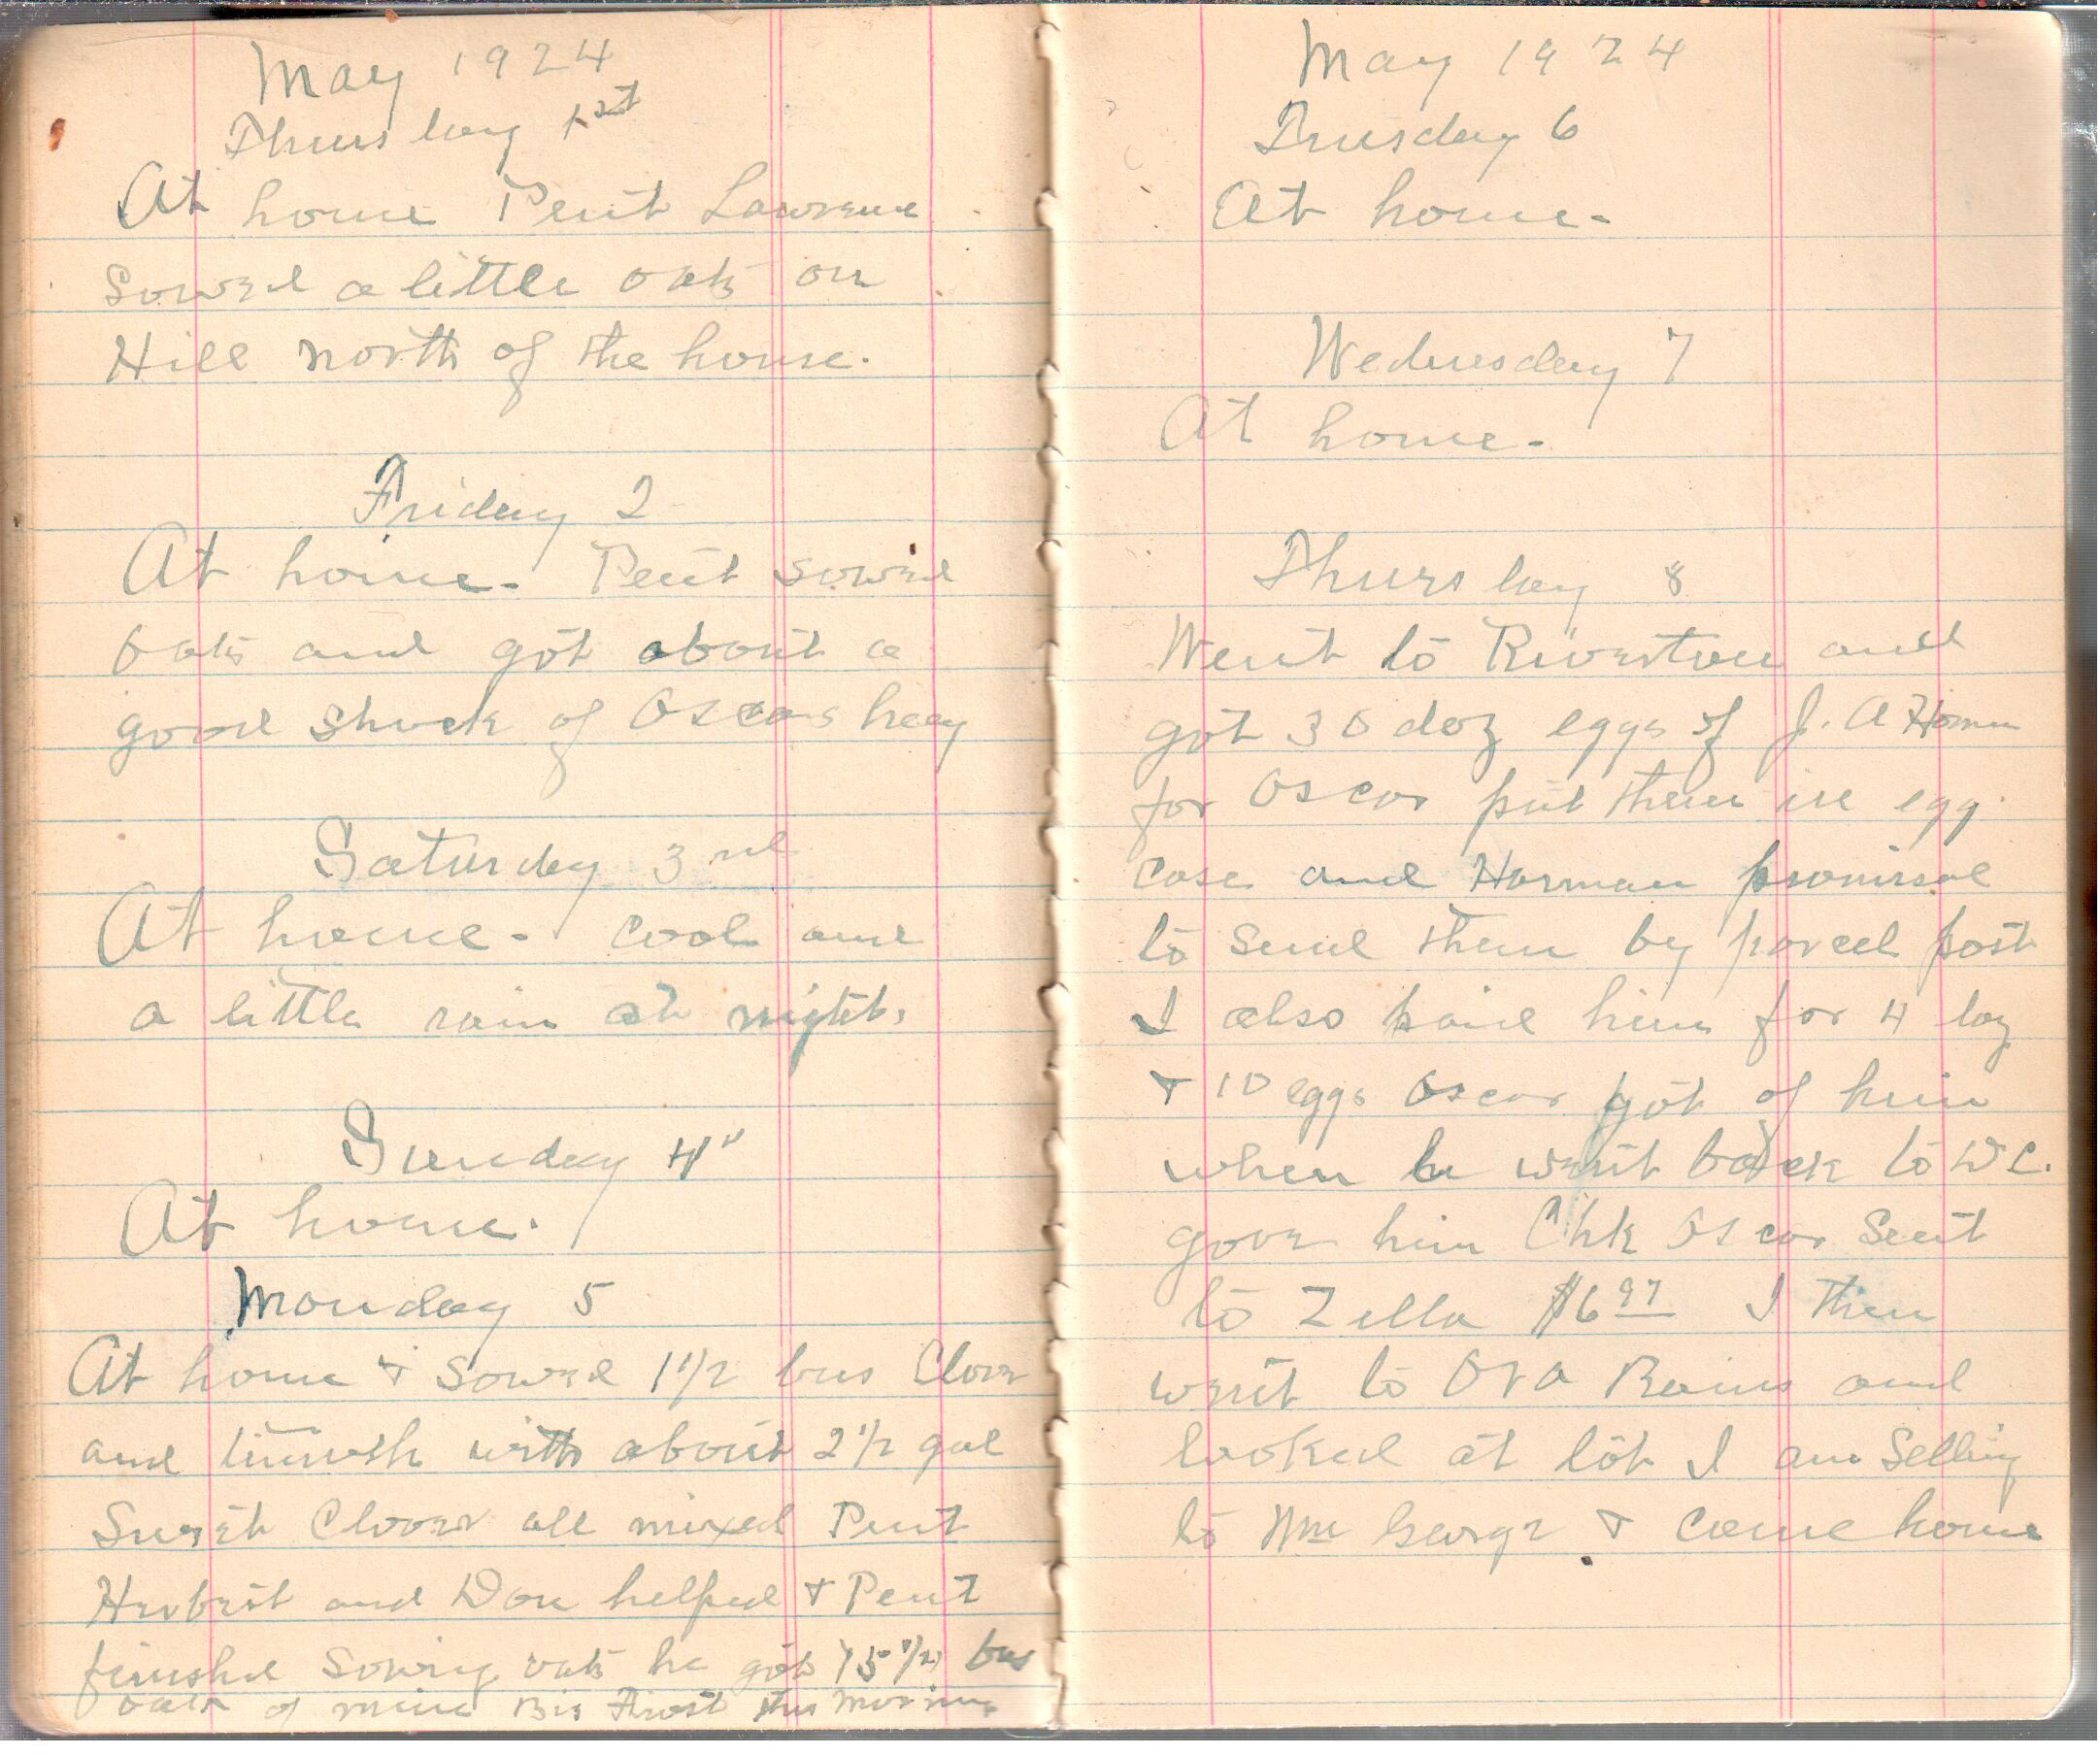 May 1924
Thursday 1st
At home Pent Lawrence
Sowed a little oats on
Hill north of the house.
Friday 2
At home - Pent sowed
oats and got about a
good shock of Oscars hay
Saturday 3rd
At home - cool and
a little rain at night.
Sunday 4"
At home.
Monday 5
At home + Sowed 1 1/2 bus Clover
and with about 2 1/2 gal
Sweet Clover all mixed Pent
Herbert and Don helped + Pent
finished Sowing oats he got 15 1/2 bus
oats of mine Big Frost this morning
May 1924
Tuesday 6
At home -
Wednesday 7
At home -
Thursday 8
Went to Riverton and
got 30 doz eggs of J. A Harman
for Oscar put them in egg
case and Harman promised
to send them by parcel post
I also paid him for 4 doz
+ 10 eggs Oscar got of him
when he went back to W C.
gave him Chk Oscar Sent
to Zella $6 97 I then
went to Ora Rains and
looked at lot I am Selling
to Wm George + Came home